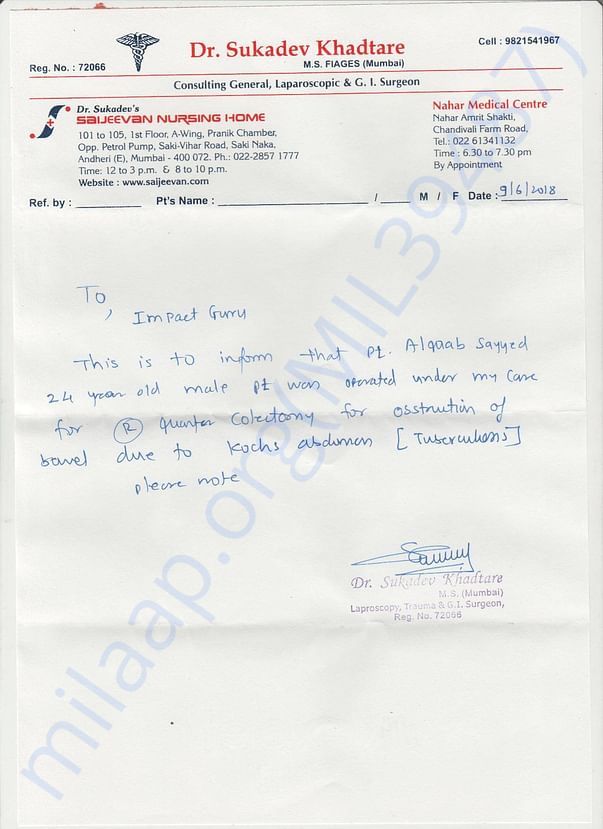 Dr. Sukadev Khadtare
M.S. FIAGES (Mumbai)
Cell : 9821541967
Reg. No. : 72066
Consulting General, Laparoscopic & G. I. Surgeon
Dr. Sukadev's
SAIJEEVAN NURSING HOME
101 to 105, 1st Floor, A-Wing, Pranik Chamber,
Opp. Petrol Pump, Saki-Vihar Road, Saki Naka,
Andheri (E), Mumbai - 400 072. Ph.: 022-2857 1777
Time: 12 to 3 p.m. & 8 to 10 p.m.
Website : www.saijeevan.com
Nahar Medical Centre
Nahar Amrit Shakti,
Chandivali Farm Road,
Tel.: 022 61341132
Time : 6.30 to 7.30 pm
By Appointment
Ref. by : Pt's Name : / M / F Date : 9/6/2018
To,
Impact Guru
This is to inform that pt. Alqaab Sayyed
24 year old male pt was operated under my care
for (R) Quarter Colectomy for osstrution of
bowel due to Kochs abdomen [Tuberculosis]
please note
Dr. Sukadev Khadtare
M.S. (Mumbai)
Laproscopy, Trauma & G.I. Surgeon,
Reg. No. 72066
milaap.org(MIL39437)